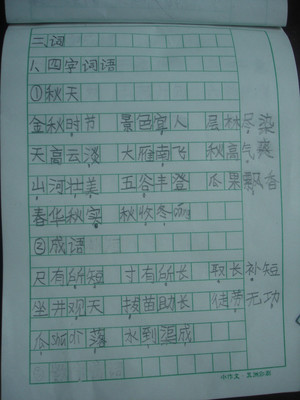 三、词
1、四字词语
①秋天
金秋时节 景色宜人 层林尽染
天高云淡 大雁南飞 秋高气爽
山河壮美 五谷丰登 瓜果飘香
春华秋实 秋收冬藏
②成语
尺有所短 寸有所长 取长补短
坐井观天 拔苗助长 徒劳无功
瓜熟蒂落 水到渠成
小作文